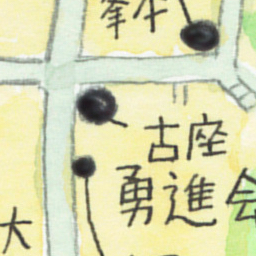 峯本
古座
勇進会
大